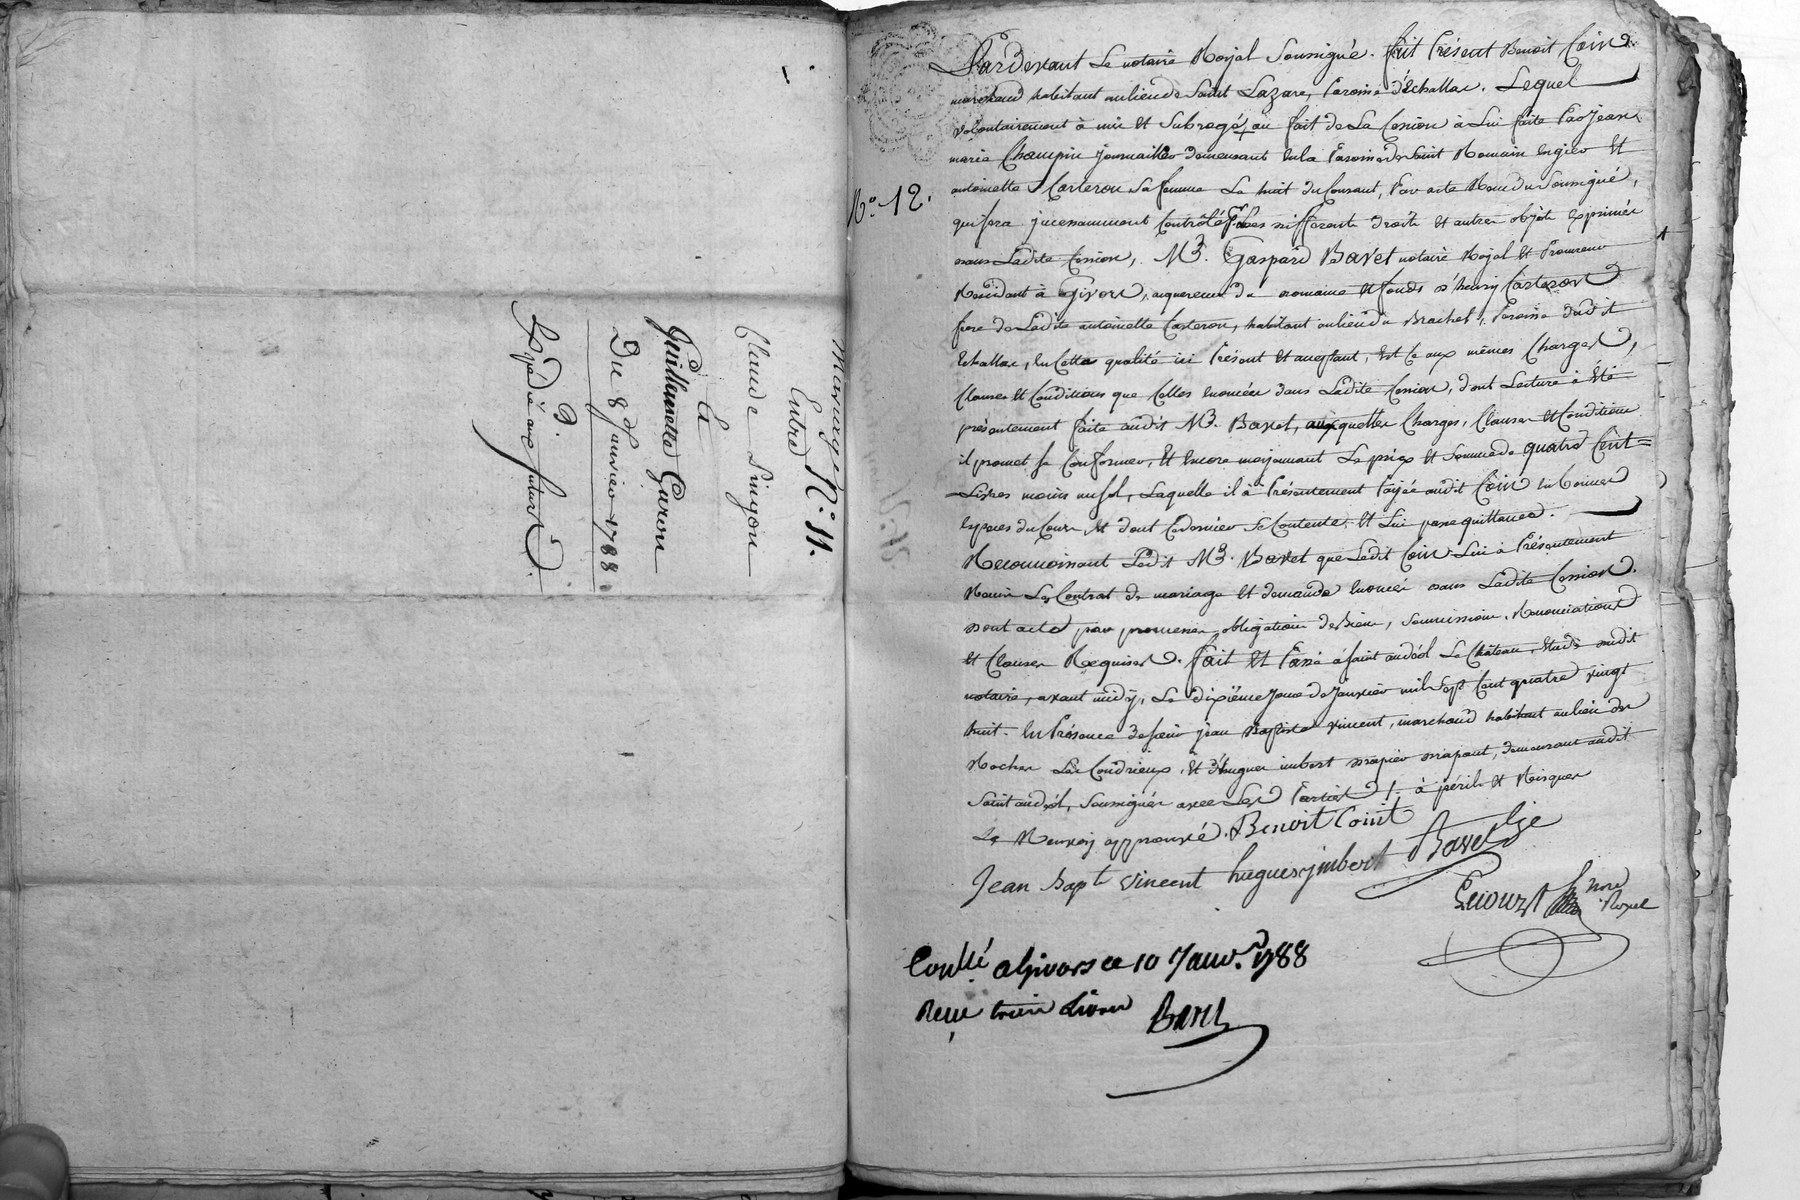 Mariage N.° 11.
Entre
Claude Lingon
Et
Guillemette Garon
Du 8 Janvier 1788
Expédié aux futurs
N.° 12.
Pardevant Le notaire Royal Soussigné. fut Présent Benoit Coin
marchand habitant au lieu de Saint Lazare, Paroisse d'Echallas. Lequel
volontairement à mis et Subrogé, au fait de La Cession à Lui faite Par Jean
marie Champin journailler demeurant en la Paroisse de Saint Romain en gier et
antoinette Carteron Sa femme Le huit du Courant, Par acte Reçu du Soussigné,
qui sera incessamment Contrôlé, des différents droits et autres objets exprimés
dans Ladite Cession, M.e Gaspard Bavet notaire Royal et Procureur
Résidant à Givors, acquereur de domaine et fonds d'henry Carteron
frere de Ladite antoinette Carteron, habitant au lieu de Brachet, Paroisse dudit
Echallas, en Cette qualité ici Présent et acceptant, Et Ce aux mêmes Charges,
Clauses et Conditions que Celles énoncées dans Ladite Cession, dont Lecture à été
présentement faite audit M.e Bavet, auxquelles Charges, Clauses et Conditions
il promet se Conformer, Et encore moyennant Le prix et Somme de quatre Cent
Livres moins un sol, Laquelle il à Présentement Payée audit Coin en bonnes
espèces du Cours et dont Ce dernier se Contente, et Lui passe quittance.
Reconnoissant Ledit M.e Bavet que Ledit Coin Lui à Présentement
Remis Les Contrat de mariage et demande énoncés dans Ladite Cession.
dont acte par promesses, obligation de Biens, Soumissions, Renonciations
et Clauses Requises. fait et Passé à Saint andéol Le Château, Etude dudit
notaire, avant midy, Le dixième jour de Janvier mil Sept Cent quatre vingt
huit. En Présence de sieur jean Baptiste vincent, marchand habitant au lieu des
Roches Les Condrieux, et d'hugues imbert drapier drapant, demeurant audit
Saint andéol, Soussignés avec Les Parties /. à périls et Risques
Le Renvoy approuvé. Benoit Coint
Bavet
Jean Bapt vincent hugues jmbert
Nore Royal
Conllé a Givors ce 10 Janv.r 1788
Reçu trois Livres Bavet